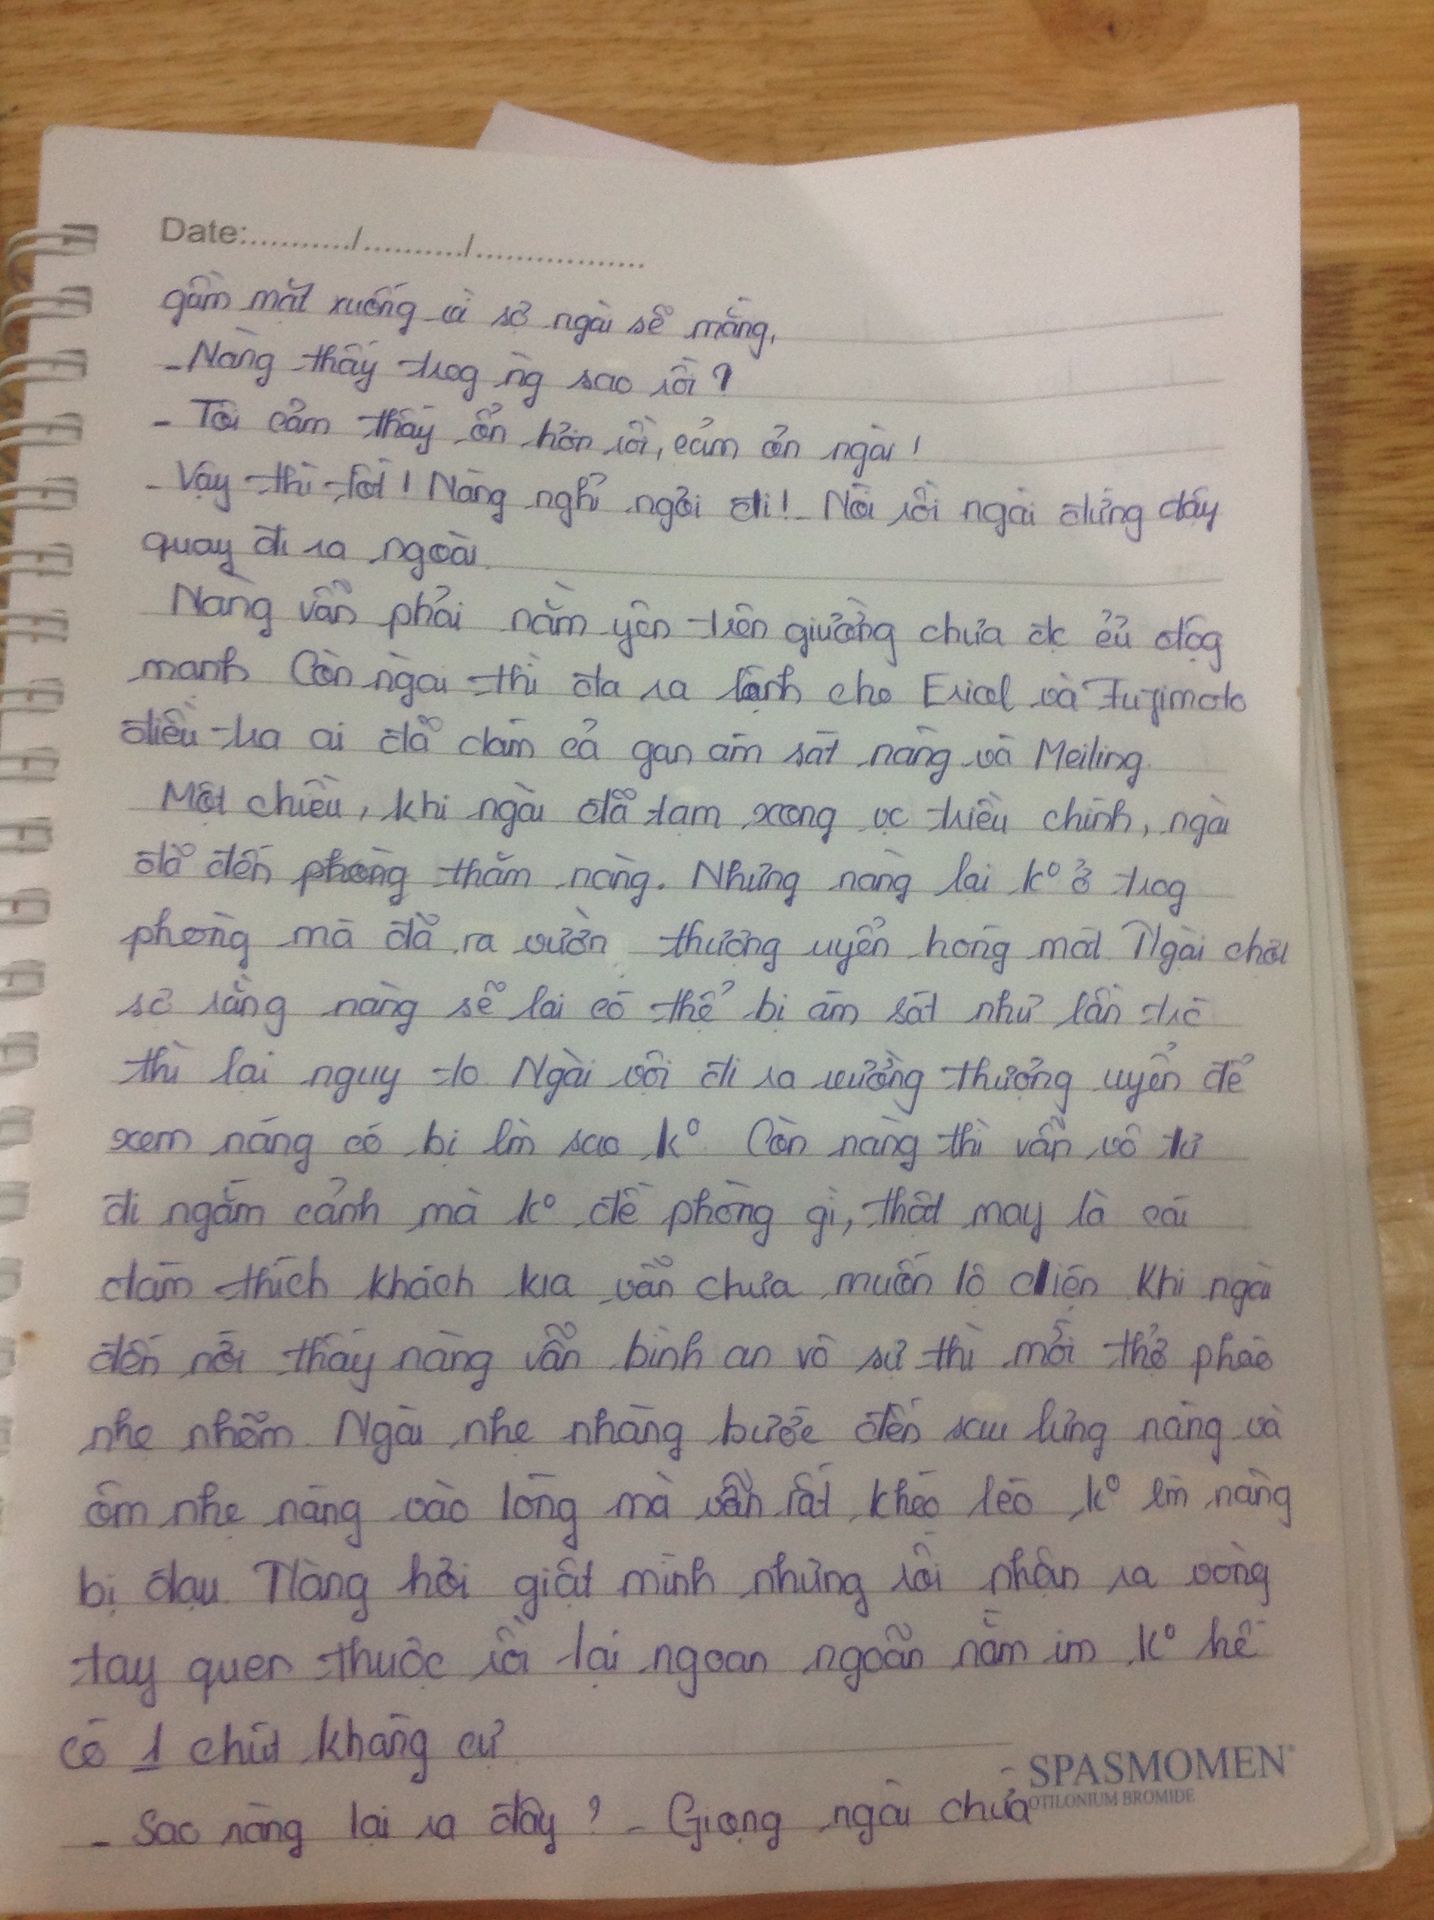 Date:.........../.........../.................
gằm mặt xuống vì sợ ngài sẽ mắng.
- Nàng thấy trog ng sao rồi?
- Tôi cảm thấy ổn hơn rồi, cảm ơn ngài!
- Vậy thì tốt! Nàng nghỉ ngơi đi! - Nói rồi ngài đứng dậy
quay đi ra ngoài.
Nàng vẫn phải nằm yên trên giường chưa đc cử độg
mạnh. Còn ngài thì đã ra lệnh cho Eriol và Fujimoto
điều tra ai đã dám cả gan ám sát nàng và Meiling.
Một chiều, khi ngài đã tạm xong vc triều chính, ngài
đã đến phòng thăm nàng. Nhưng nàng lại k° ở trog
phòng mà đã ra vườn thượng uyển hóng mát. Ngài chợt
sợ rằng nàng sẽ lại có thể bị ám sát như lần trc
thì lại nguy to. Ngài vội đi ra vường thượng uyển để
xem nàng có bị lm sao k°. Còn nàng thì vẫn vô tư
đi ngắm cảnh mà k° đề phòng gì, thật may là cái
đám thích khách kia vẫn chưa muốn lộ diện. Khi ngài
đến nơi thấy nàng vẫn bình an vô sự thì mới thở phào
nhẹ nhõm. Ngài nhẹ nhàng bước đến sau lưng nàng và
ôm nhẹ nàng vào lòng mà vẫn rất khéo léo k° lm nàng
bị đau. Nàng hơi giật mình nhưng rồi nhận ra vòng
tay quen thuộc rồi lại ngoan ngoãn nằm im k° hề
có 1 chút kháng cự.
- Sao nàng lại ra đây? - Giọng ngài chứa
SPASMOMEN®
OTILONIUM BROMIDE